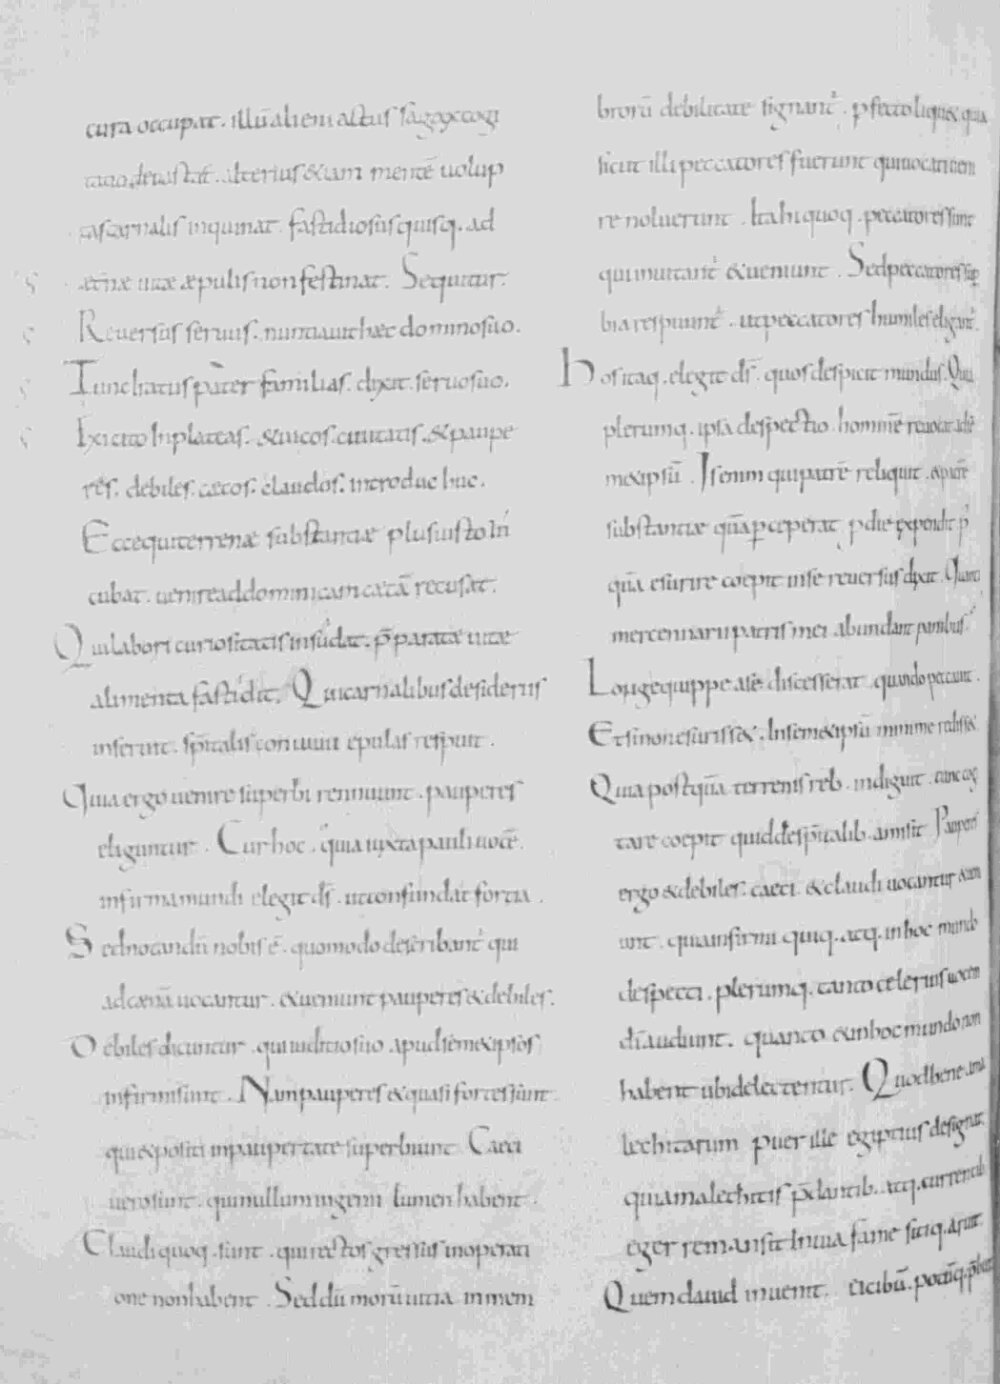 cura occupat. illū alieni actus sagax cogi
tatio deuastat. alterius & iam mentē uolup
tas carnalis inquinat. fastidiosus quisq. ad
æt̄næ uitæ æpulis non festinat. Sequitur.
Reuersus seruus. nuntiauit hæc domino suo.
Tunc iratus pater familias. dixit. seruo suo.
Exi cito In plateas. & uicos. ciuitatis. & paupe
res. debiles. cæcos. claudos. introduc huc.
Ecce qui terrenæ substantiæ plus iusto In
cubat. uenire ad dominicam cænā recusat.
Qui labori curiositatis insudat. p̄paratæ uitæ
alimenta fastidit. Qui carnalibus desideriis
inseruit. sp̄italis conuiuii epulas respuit.
Quia ergo uenire superbi rennuunt. pauperes
eliguntur. Cur hoc. quia iuxta pauli uocē.
infirma mundi elegit ds̄. ut confundat fortia.
Sed notandū nobis ē. quomodo describant' qui
ad cænā uocantur. & ueniunt pauperes & debiles.
Debiles dicuntur. qui iuditio suo apud sem&ipsos
infirmi sunt. Nam pauperes & quasi fortes sunt
qui & positi in paupertate superbiunt. Caeci
uero sunt. qui nullum ingenii lumen habent.
Claudi quoq. sunt. qui rectos gressus in operati
one non habent. Sed dū morū uitia in mem
brorū debilitate signant'. pfecto liqu& quia
sicut illi peccatores fuerunt qui uocati ueni
re noluerunt. Ita hi quoq. peccatores sunt
qui inuitant' & ueniunt. Sed peccatores sup
bi a respuunt'. ut peccatores humiles eligant'.
Hos itaq. elegit ds̄. quos despicit mundus. Quia
plerumq. ipsa despectio. hominē reuocat ad se
m&ipsū. Is enim qui patrē reliquit. & partē
substantiæ quā pceperat pdie expendit p
quā esurire coepit in se reuersus dixit. Quanti
mercennarii patris mei abundant panibus.
Longe quippe a se discesserat. quando peccauit.
Et si non esuriss&. In sem&ipsū minime rediss&
Quia postquā terrenis reb. indiguit. tunc cogi
tare coepit quid de sp̄italib. amisit. Pauperes
ergo & debiles. caeci. & claudi uocantur & ueni
unt. quia infirmi quiq. atq. in hoc mundo
despecti. plerumq. tanto celerius uocem
dī audiunt. quanto & in hoc mundo non
habent ubi delectentur. Quod bene ama
lechitarum puer ille egiptius designat
quia malechitis p̄dantib. atq. currentib
eger remansit In uia fame sitiq. aruit.
Quem dauid inuenit. & cibū. potūq. p̄buit